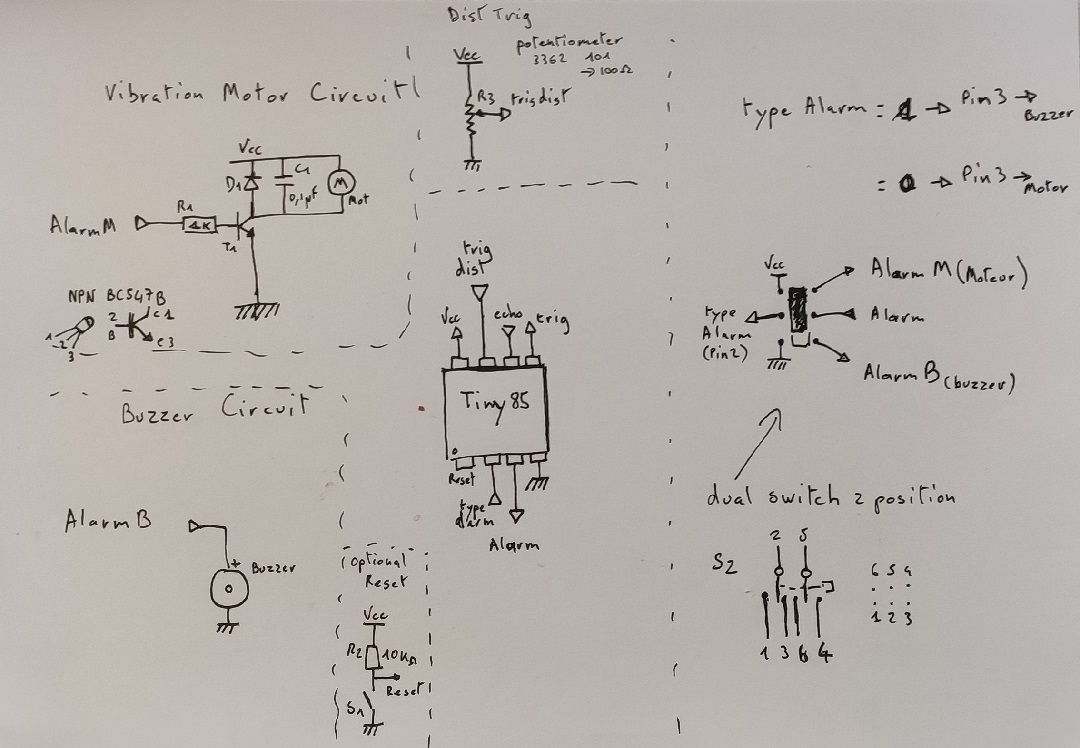 Dist Trig
potentiometer
3362 101
→ 100Ω
Vcc
R3
trigdist
Vibration Motor Circuit
Vcc
D1
C1
0,1µF
M
Mot
AlarmM
R1
1K
T1
NPN BC547B
2
B
C1
e3
1
2
3
Buzzer Circuit
AlarmB
+
Buzzer
(optional)
Reset
Vcc
R2
10KΩ
Reset
S1
trig
dist
Vcc
echo
trig
Tiny85
Reset
type
alarm
Alarm
type Alarm = 1 → Pin3 → Buzzer
= 0 → Pin3 → Motor
Vcc
Alarm M (Moteur)
type
Alarm
(Pin2)
Alarm
Alarm B (buzzer)
dual switch 2 position
S2
2 5
1 3 6 4
6 5 4
1 2 3